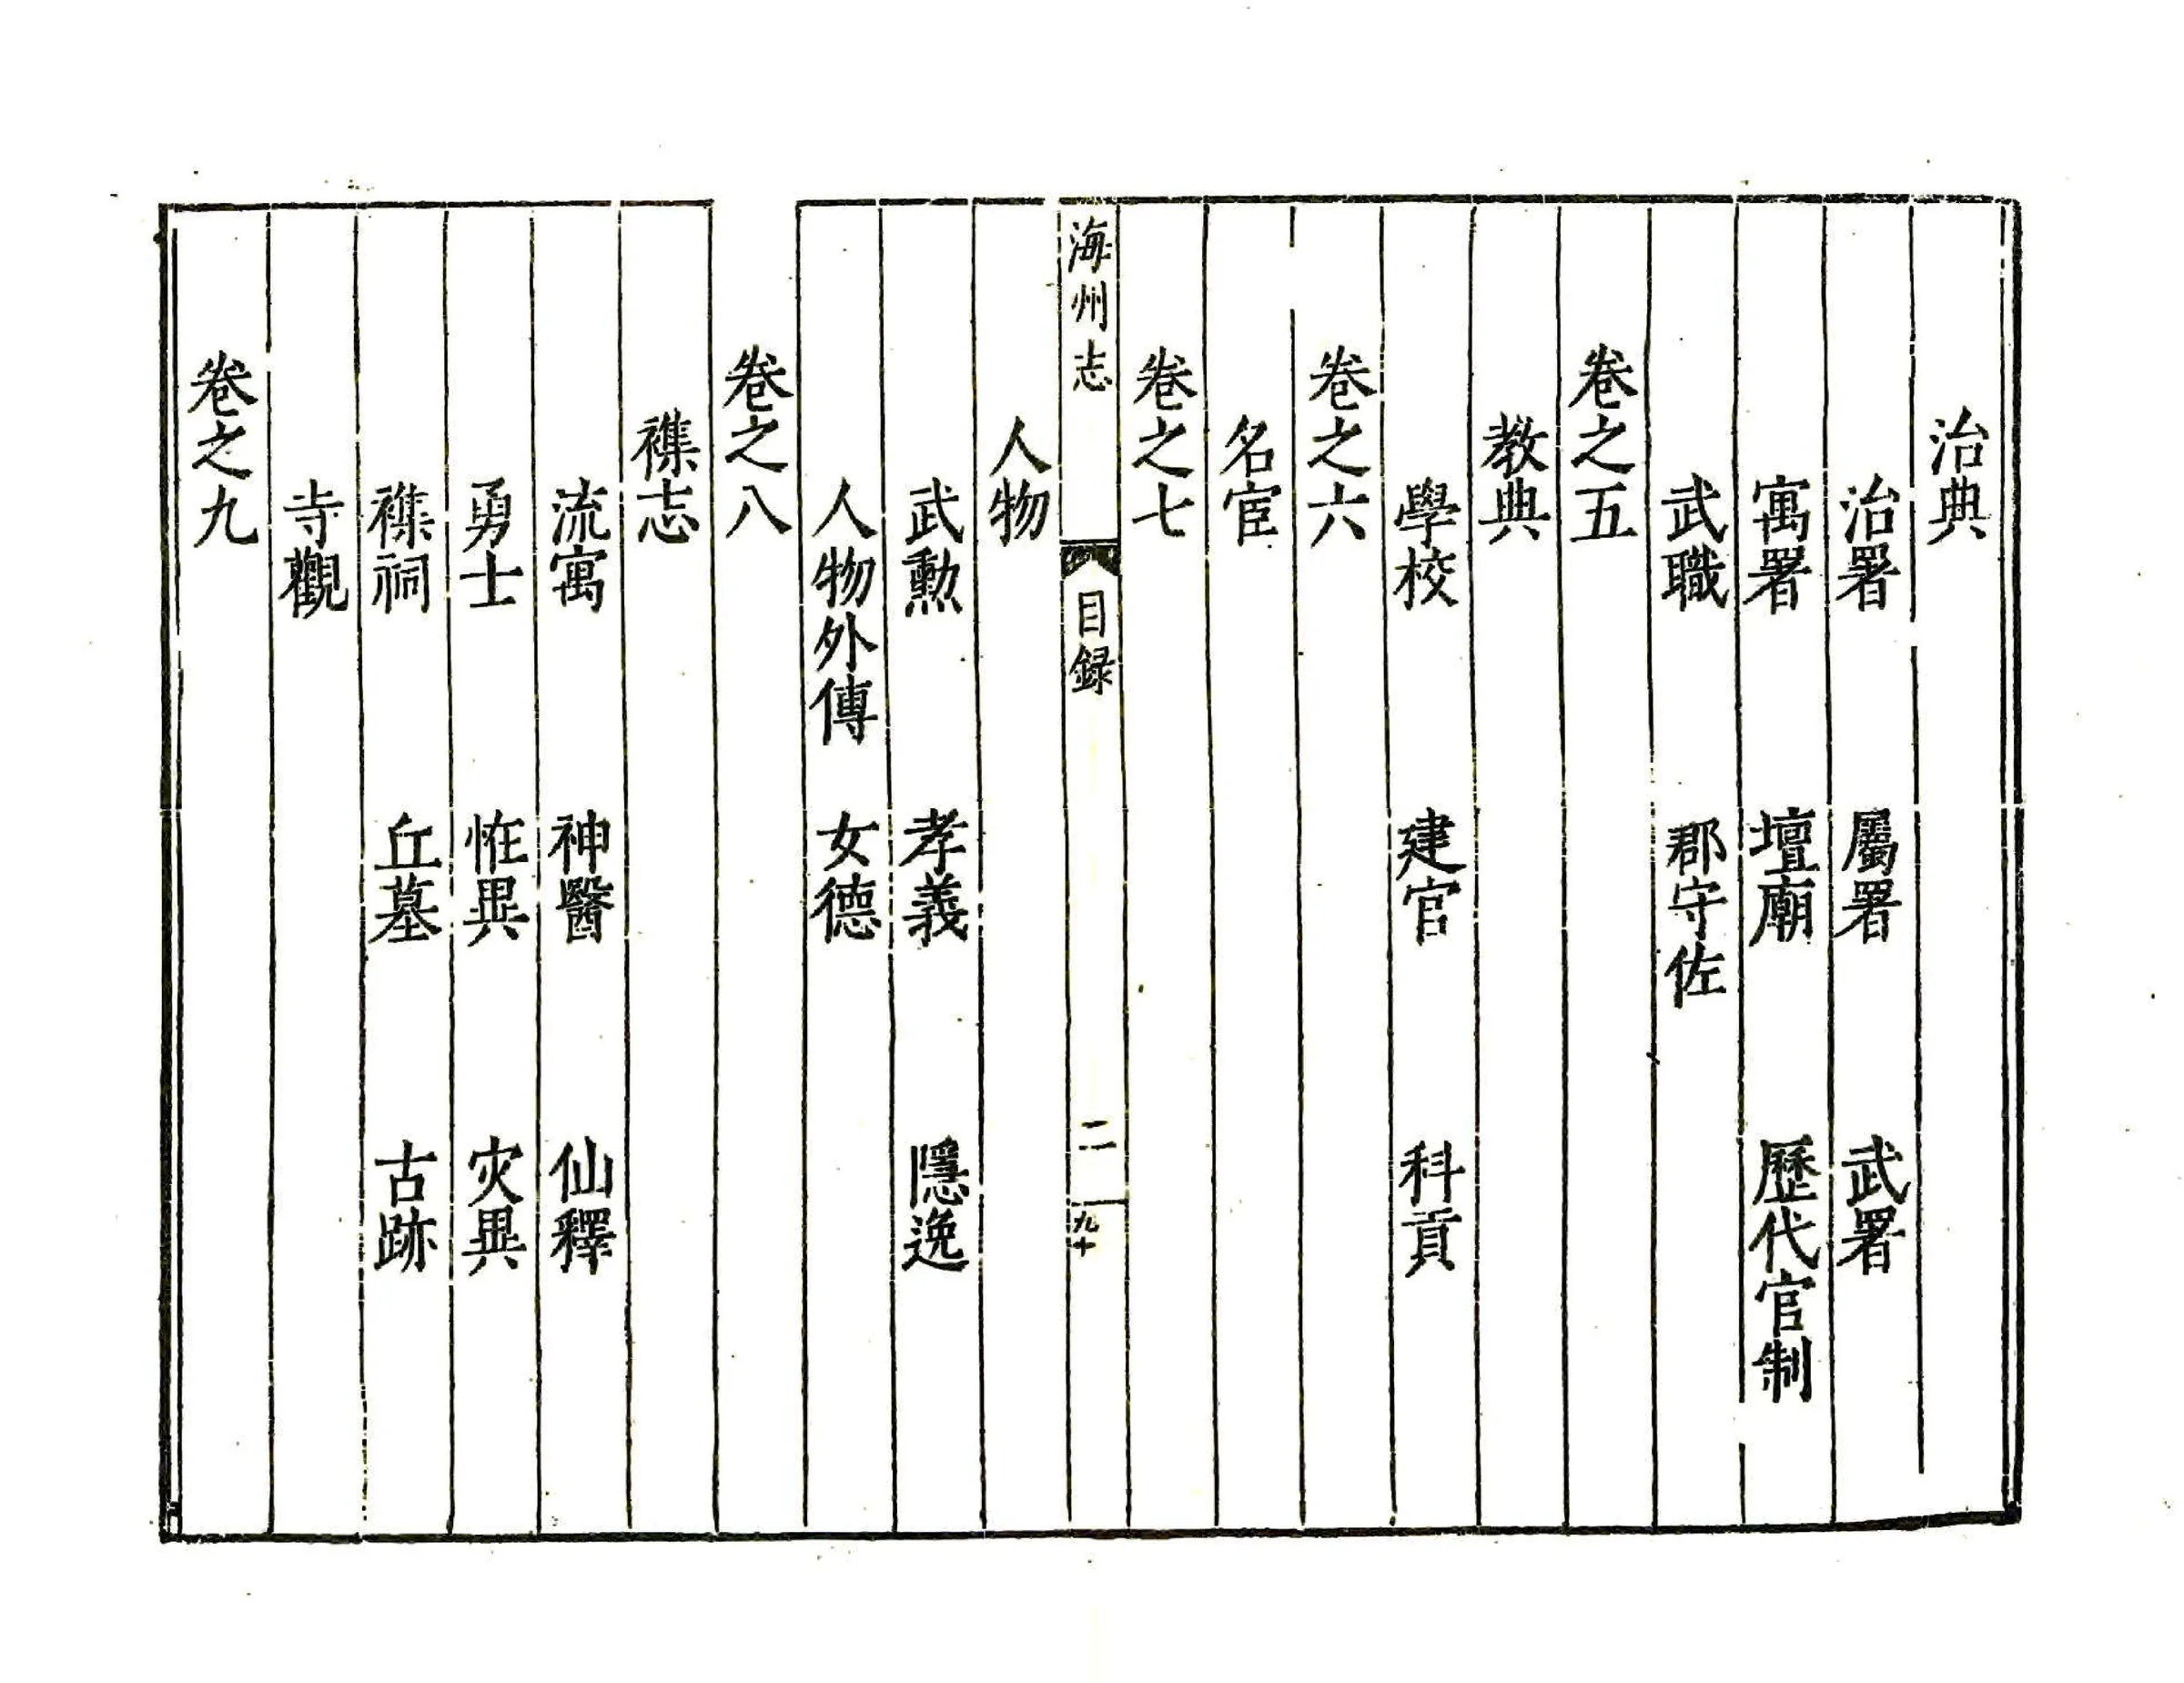 治典
治署　屬署　武署
寓署　壇廟　歷代官制
武職　郡守佐
卷之五
教典
學校　建官　科貢
卷之六
名宦
卷之七
海州志　目録　二　九十
人物
武勳　孝義　隱逸
人物外傳　女德
卷之八
襍志
流寓　神醫　仙釋
勇士　恠異　灾異
襍祠　丘墓　古跡
寺觀
卷之九